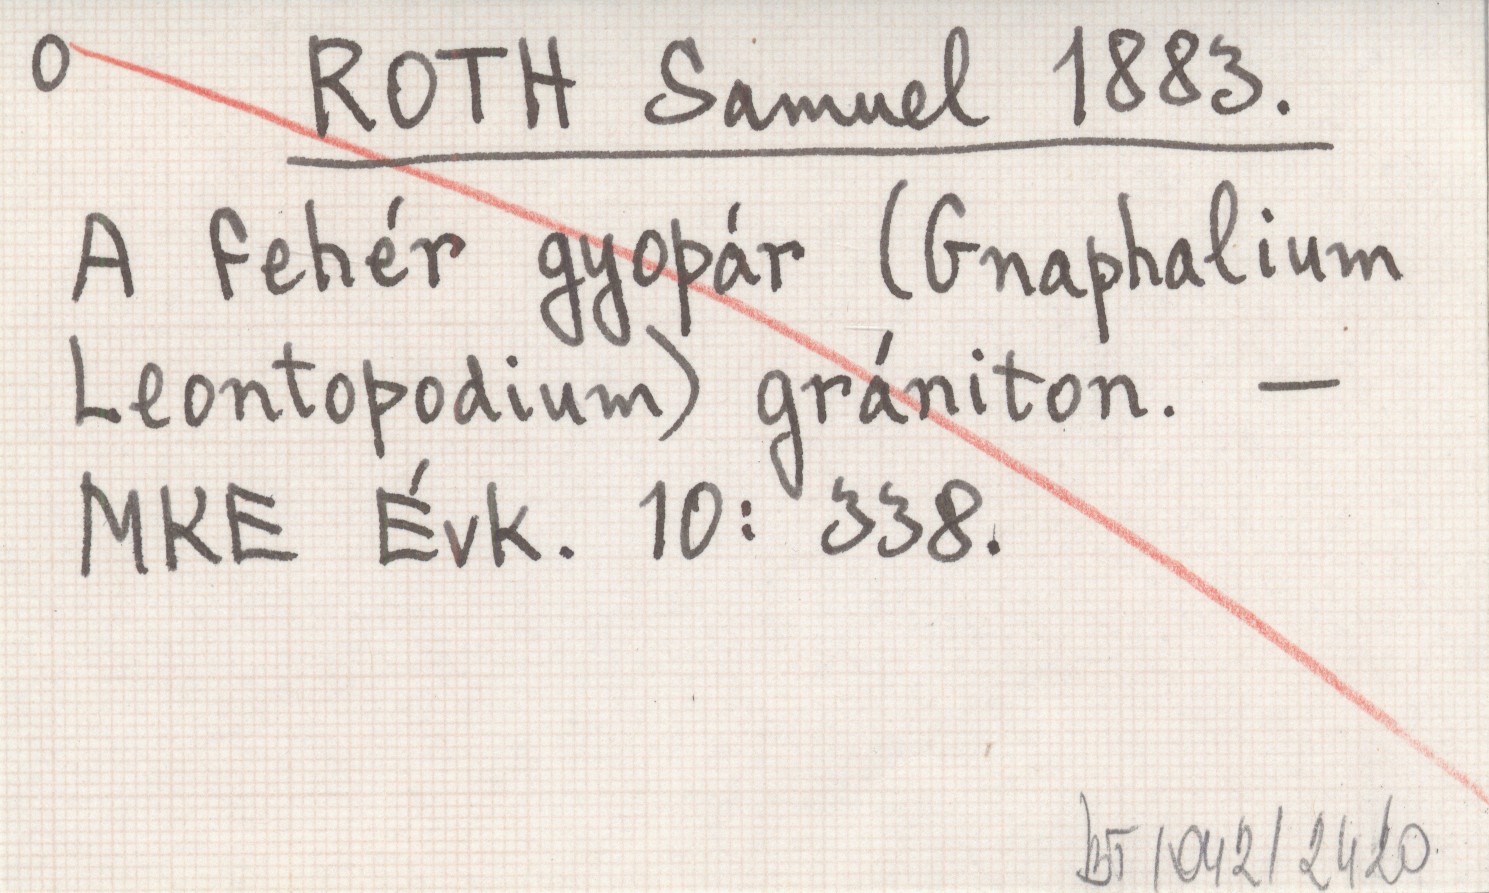 O ROTH Samuel 1883.
A fehér gyopár (Gnaphalium
Leontopodium) grániton. —
MKE Évk. 10: 338.
BT/042/2420